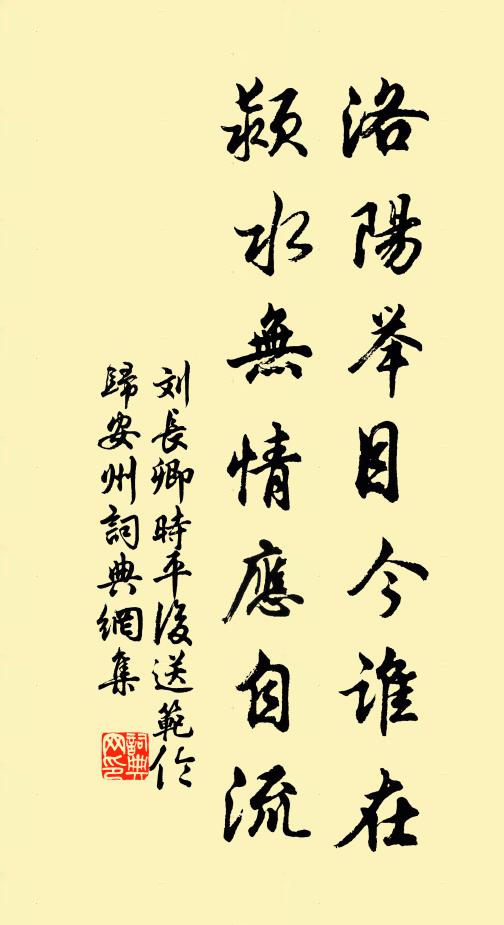 洛陽举目今誰在
潁水無情應自流
刘長卿時平後送範伦
歸安州詞典網集
詞典
网印